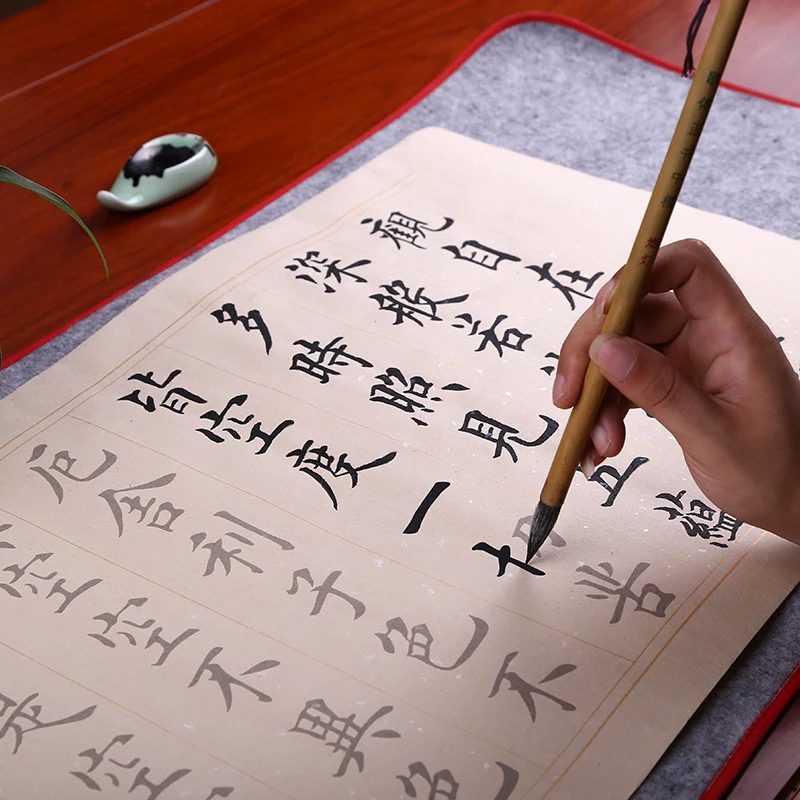 觀自在
深般若
多時照見五蘊
皆空度一切苦
厄舍利子色不
空空不異色
是空